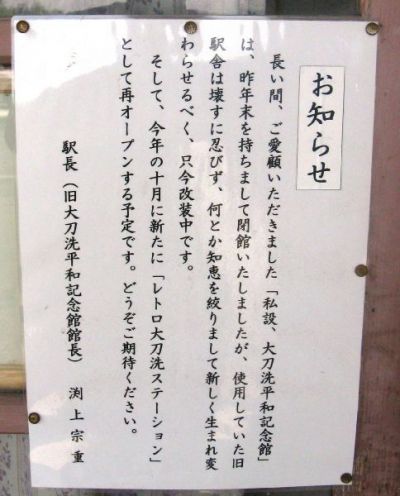 お知らせ
長い間、ご愛顧いただきました「私設、大刀洗平和記念館」
は、昨年末を持ちまして閉館いたしましたが、使用していた旧
駅舎は壊すに忍びず、何とか知恵を絞りまして新しく生まれ変
わらせるべく、只今改装中です。
そして、今年の十月に新たに「レトロ大刀洗ステーション」
として再オープンする予定です。どうぞご期待ください。
駅長（旧大刀洗平和記念館館長） 渕上宗重